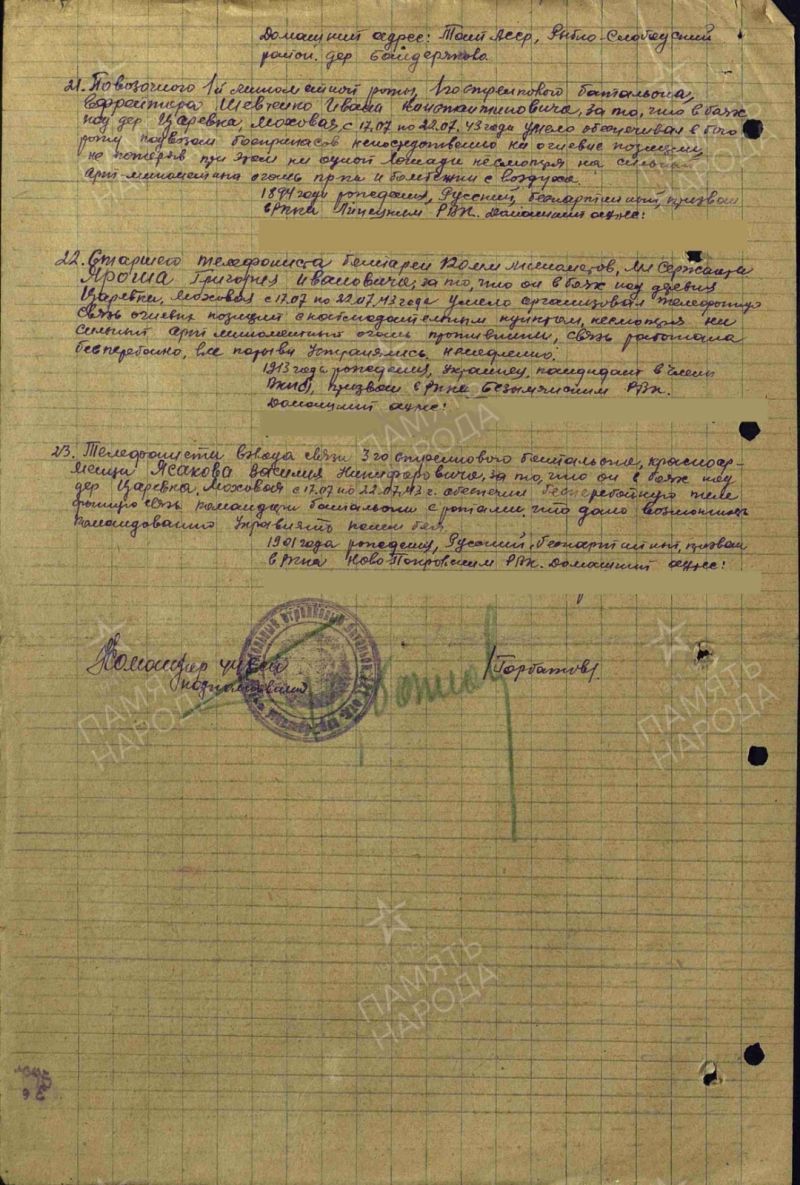 Домашний адрес: Тат АССР, Рыбно-Слободский
район. дер Байдеряково.
21. Повозочного 1й минометной роты, 1го стрелкового батальона,
Ефрейтора Шевченко Ивана Константиновича, за то, что в боях
под дер Царевка, Моховая, с 17.07 по 22.07.43 года умело обеспечивал в бою
роту подвозом боеприпасов непосредственно на огневые позиции,
не потеряв при этом ни одной лошади несмотря на сильный
арт-минометный огонь пр-ка и бомбежки с воздуха.
1894 года рождения, Русский, беспартийный, призван
в РККА Липецким РВК. Домашний адрес:
22. Старшего телефониста батареи 120 мм минометов, Мл Сержанта
Яроша Григория Ивановича, за то, что он в боях под деревня
Царевка, Моховая с 17.07 по 22.07.43 года умело организовал телефонную
связь огневых позиций с наблюдательным пунктом, несмотря на
сильный арт минометный огонь противника, связь работала
бесперебойно, все порывы устранялись немедленно.
1913 года рождения, Украинец, кандидат в члены
ВКП(б), призван в РККА РВК.
Домашний адрес:
23. Телефониста взвода связи 3го стрелкового батальона, красноар-
мейца Асакова Василия Никифоровича, за то, что он в боях под
дер Царевка, Моховая с 17.07 по 22.07.43 г. обеспечил бесперебойную теле
фонную связь командира батальона с ротами, что дало возможность
командованию управлять полем боя.
1901 года рождения, Русский, беспартийный, призван
в РККА Ново-Покровским РВК. Домашний адрес:
Командир
подполковник /Горбатов/
ПАМЯТЬ
НАРОДА